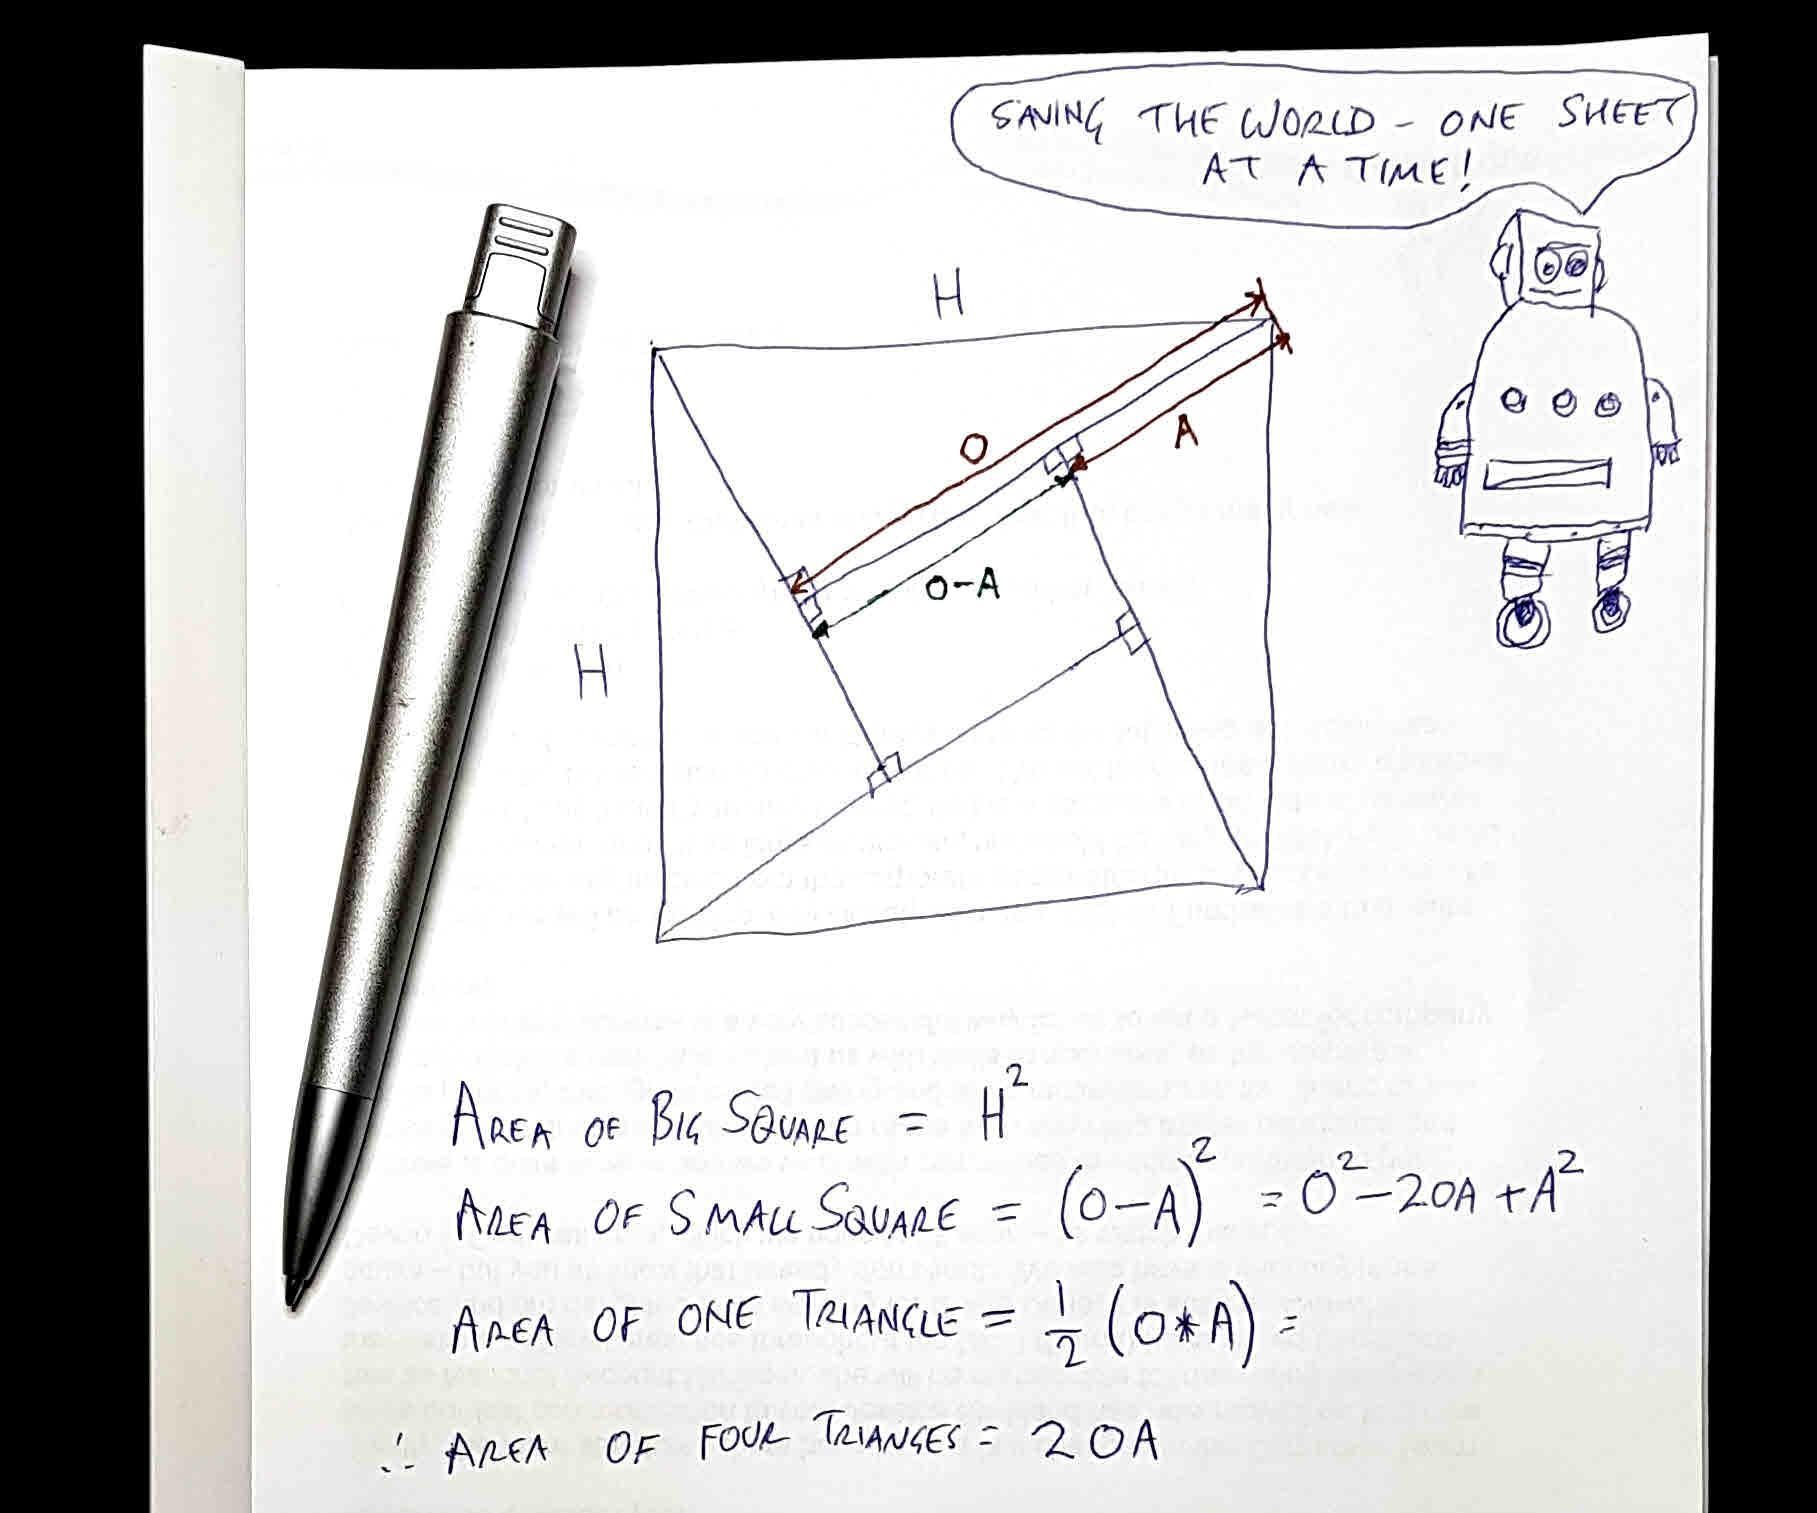 SAVING THE WORLD - ONE SHEET
AT A TIME!
H
O
A
O-A
H
AREA OF BIG SQUARE = H²
AREA OF SMALL SQUARE = (O-A)² = O² - 2OA + A²
AREA OF ONE TRIANGLE = 1/2 (O*A) =
∴ AREA OF FOUR TRIANGES = 2OA